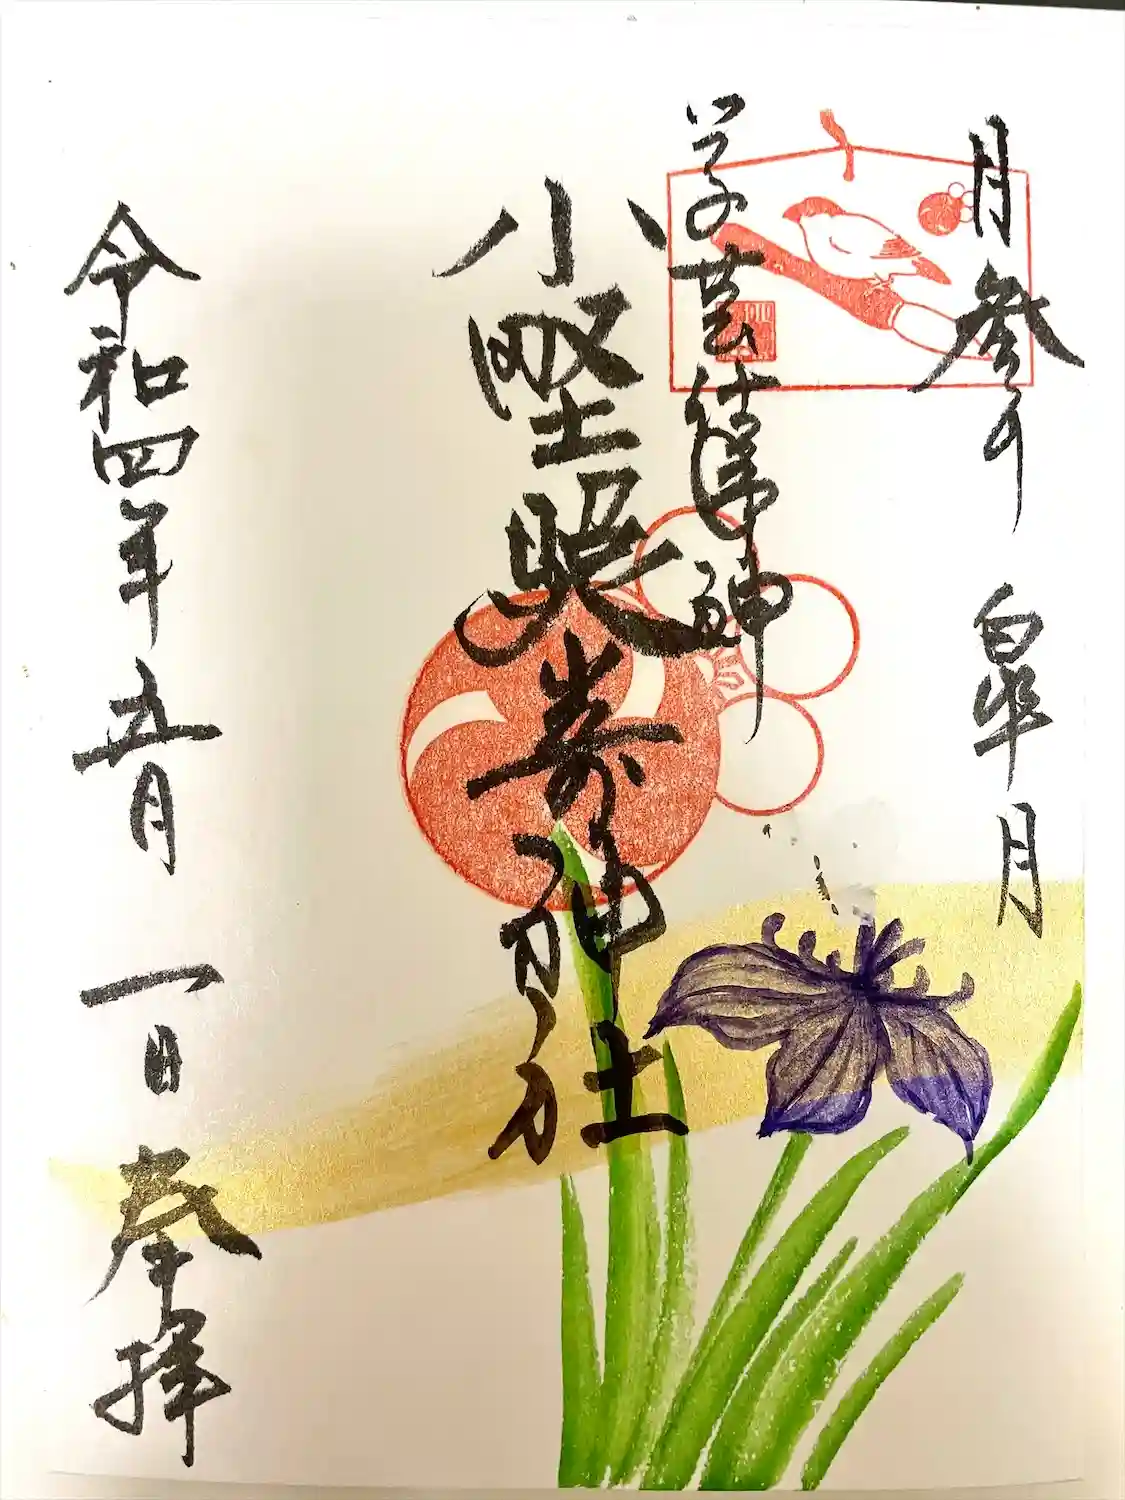 月参り 皐月
学芸 神
小野照崎神社
令和四年五月一日 奉拝